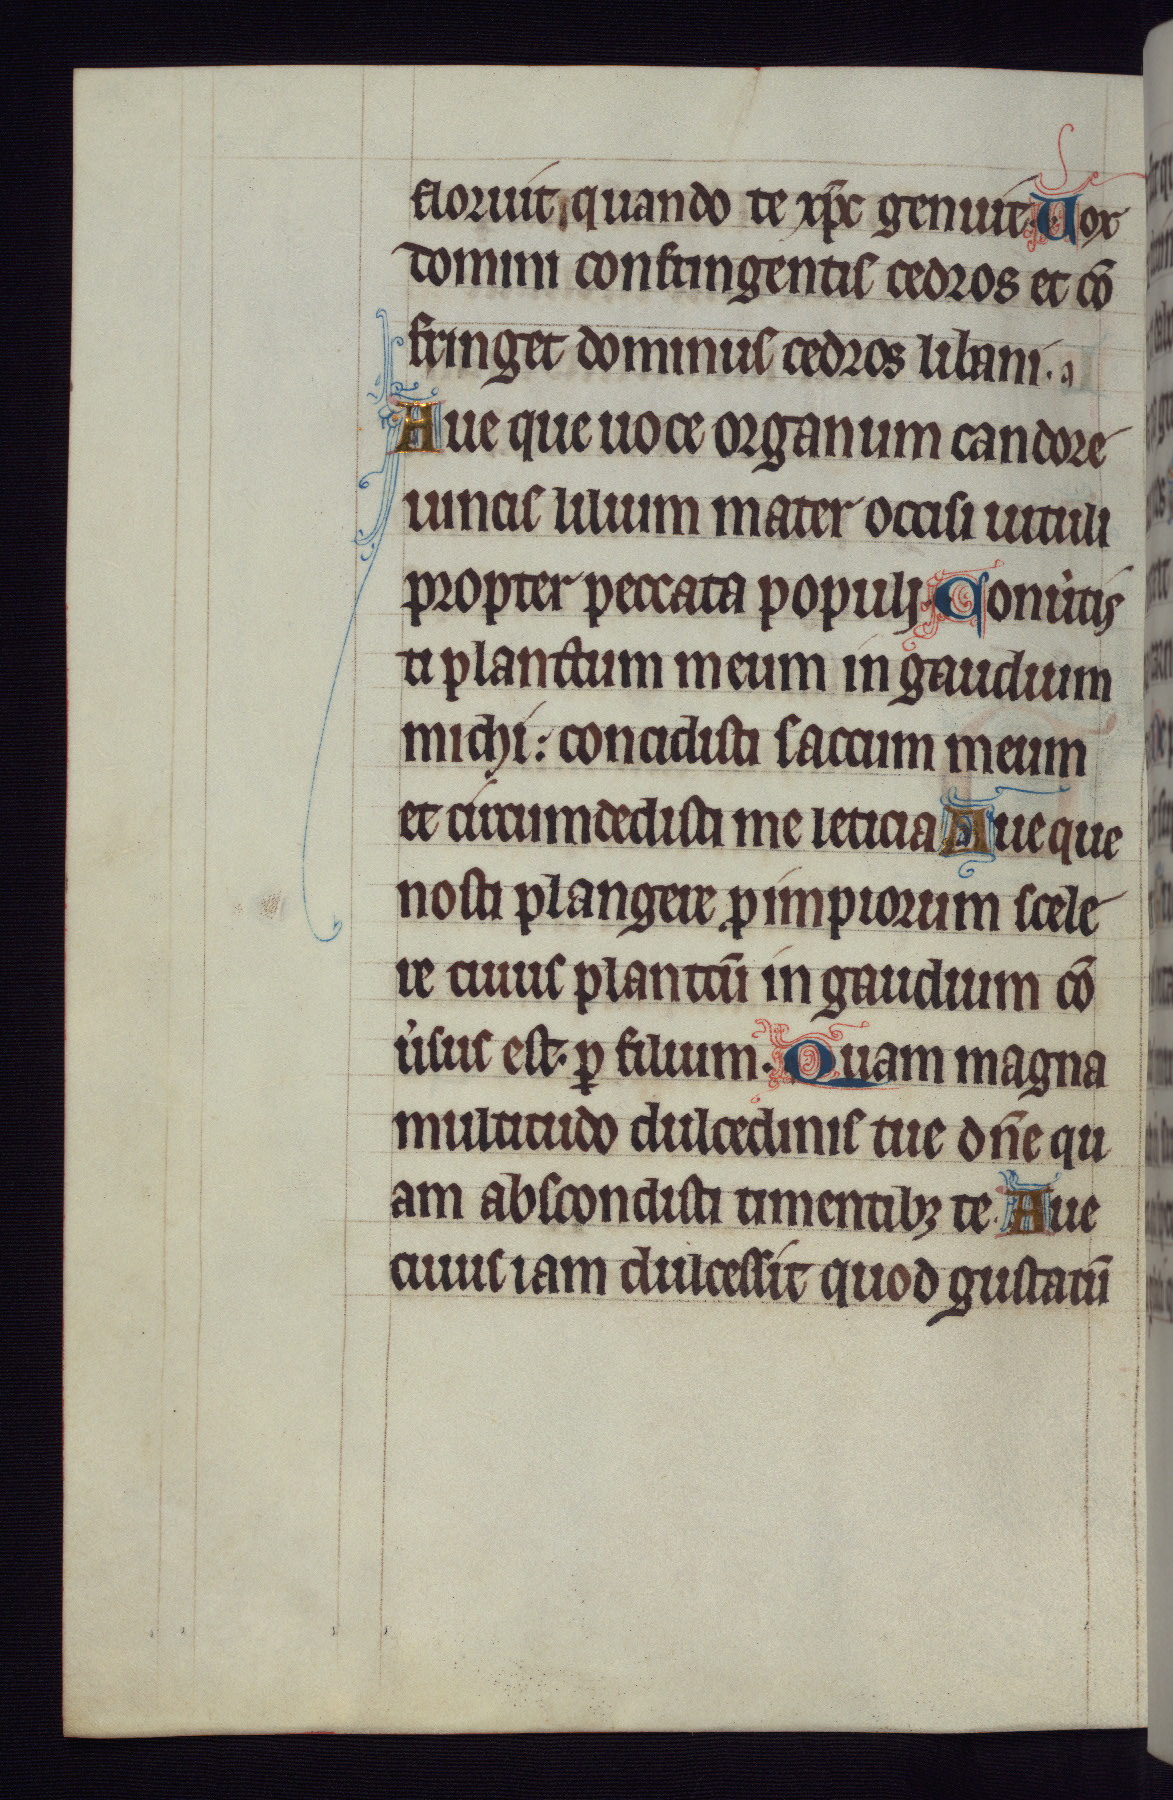 floruit quando te xp̄c genuit. Uox
domini confringentis cedros et cō
fringet dominus cedros libani.
Aue que uoce organum candore
iuncis lilium mater occisi uituli
propter peccata populi. Conu̾tis
ti planctum meum in gaudium
michi: concidisti saccum meum
et circumdedisti me leticia Aue que
nosti plangere ꝓ impiorum scele
re cuius planctū in gaudium cō
u̾sus est. ꝑ filium. Quam magna
multitudo dulcedinis tue dn̄e qu
am abscondisti timentibꝫ te. Aue
cuius iam dulcessit quod gustatū